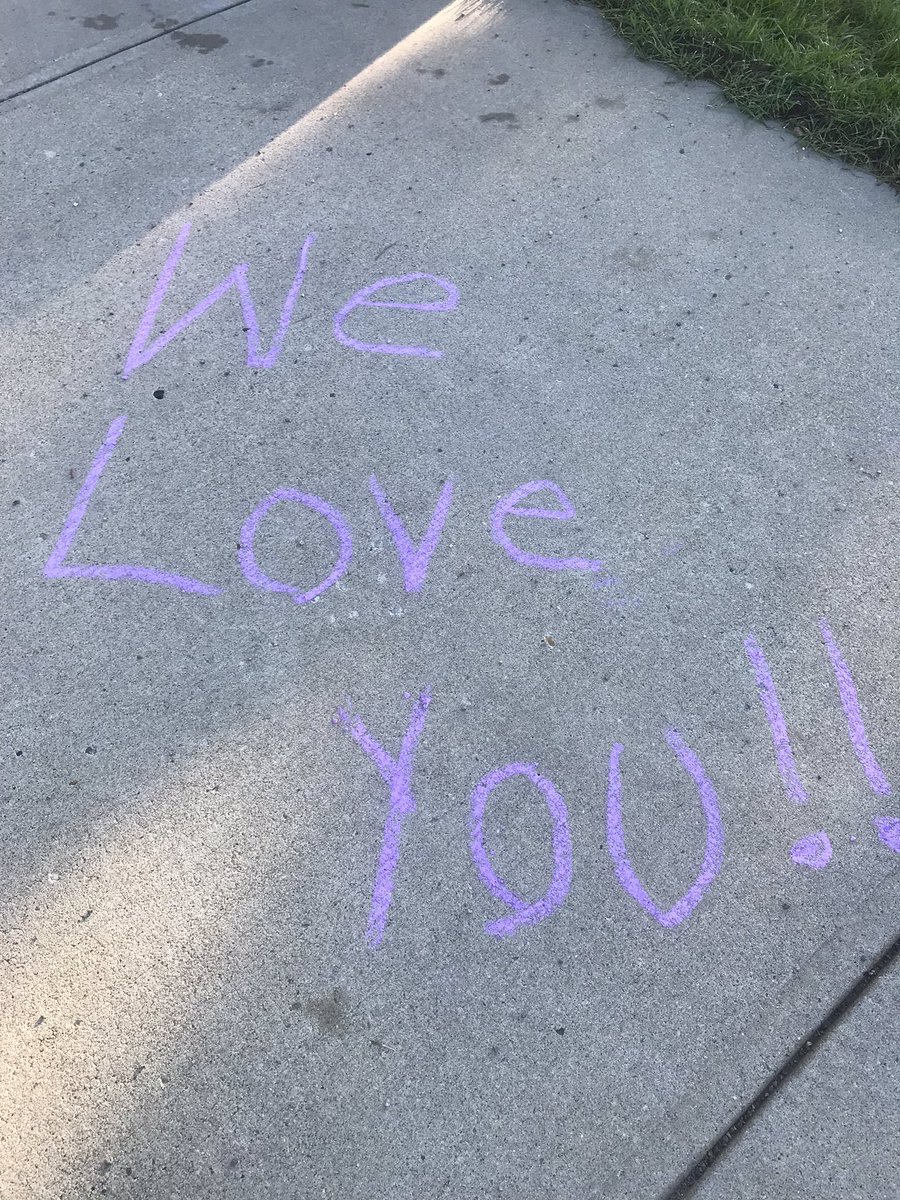 We
Love
You!!